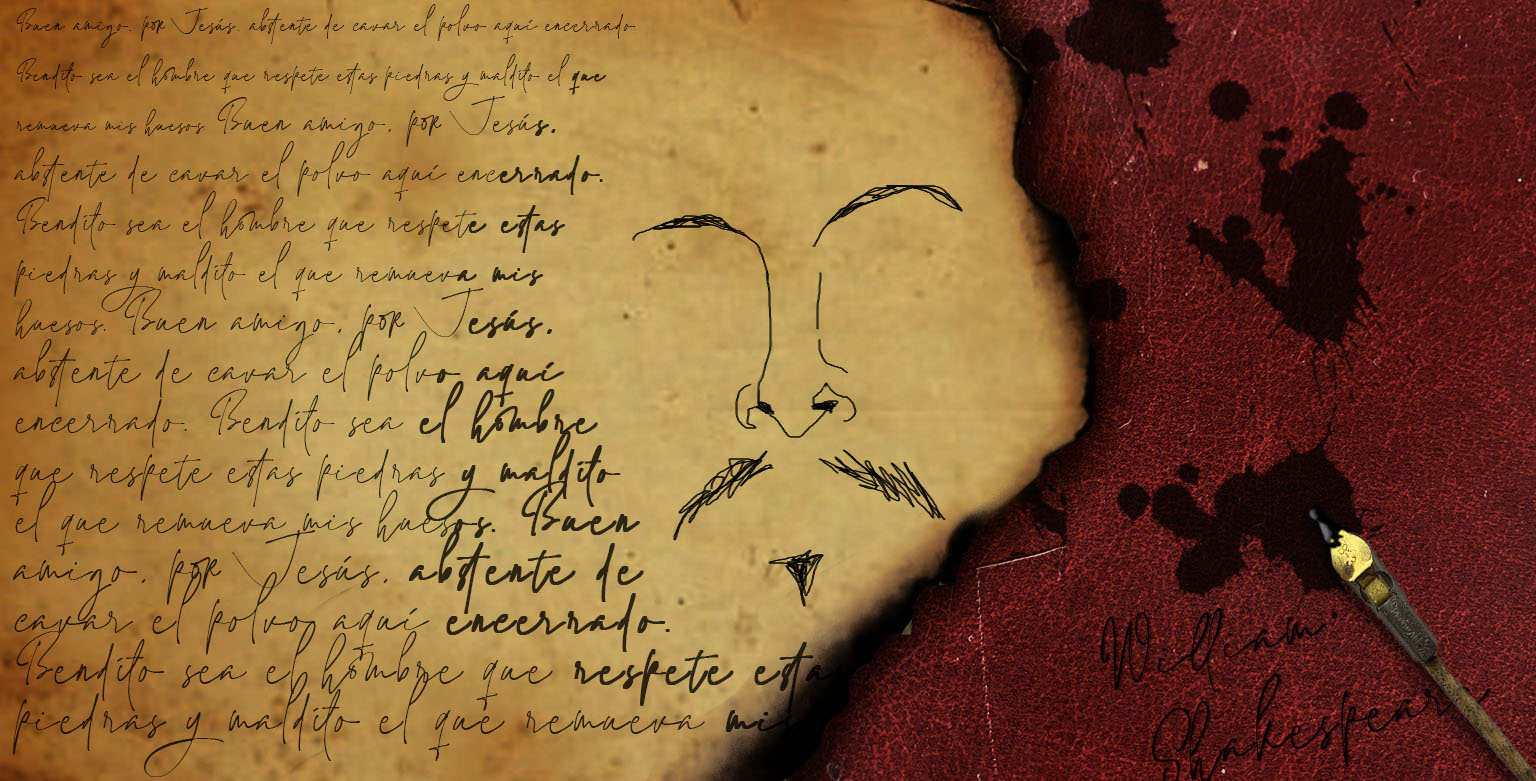 Buen amigo, por Jesús, abstente de cavar el polvo aquí encerrado.
Bendito sea el hombre que respete estas piedras y maldito el que
remueva mis huesos. Buen amigo, por Jesús,
abstente de cavar el polvo aquí encerrado.
Bendito sea el hombre que respete estas
piedras y maldito el que remueva mis
huesos. Buen amigo, por Jesús,
abstente de cavar el polvo aquí
encerrado. Bendito sea el hombre
que respete estas piedras y maldito
el que remueva mis huesos. Buen
amigo, por Jesús, abstente de
cavar el polvo aquí encerrado.
Bendito sea el hombre que respete esta
piedras y maldito el que remueva mi
William
Shakespear